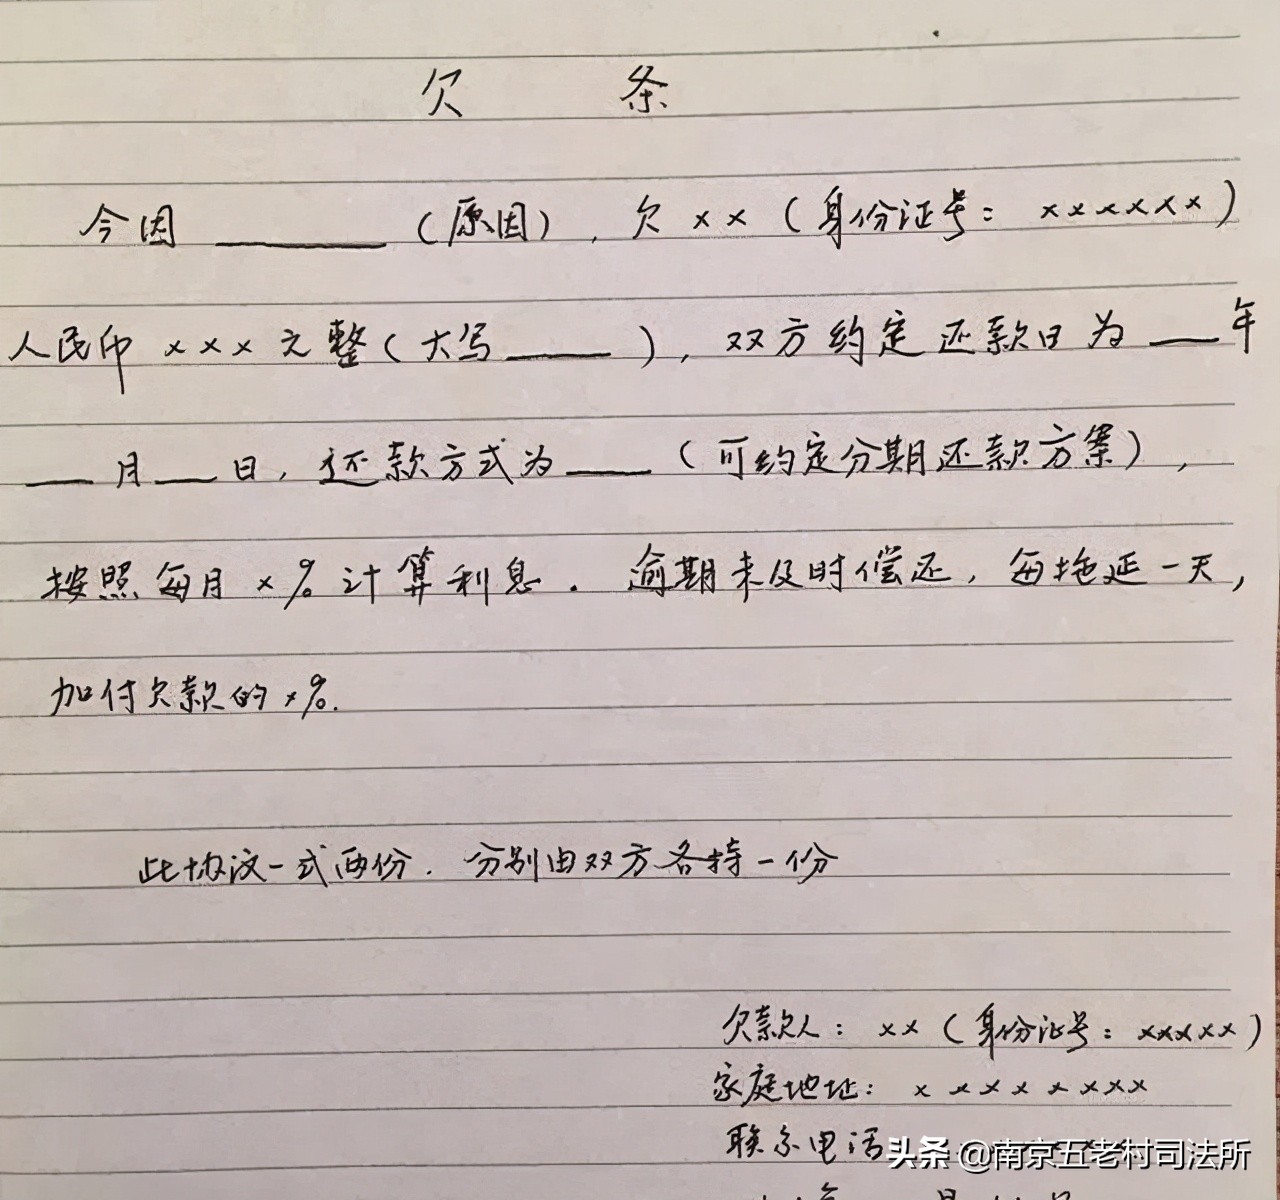 欠 条
今因 ______ (原因), 欠 xx (身份证号: xxxxxx)
人民币 xxx 元整(大写____), 双方约定还款日为 __年
__月__日, 还款方式为___(可约定分期还款方案),
按照每月 x% 计算利息. 逾期未及时偿还, 每拖延一天,
加付欠款的 x%.
此协议一式两份. 分别由双方各持一份
欠款人: xx (身份证号: xxxxx)
家庭地址: xxxxxxxx
联系电话
头条 @南京五老村司法所